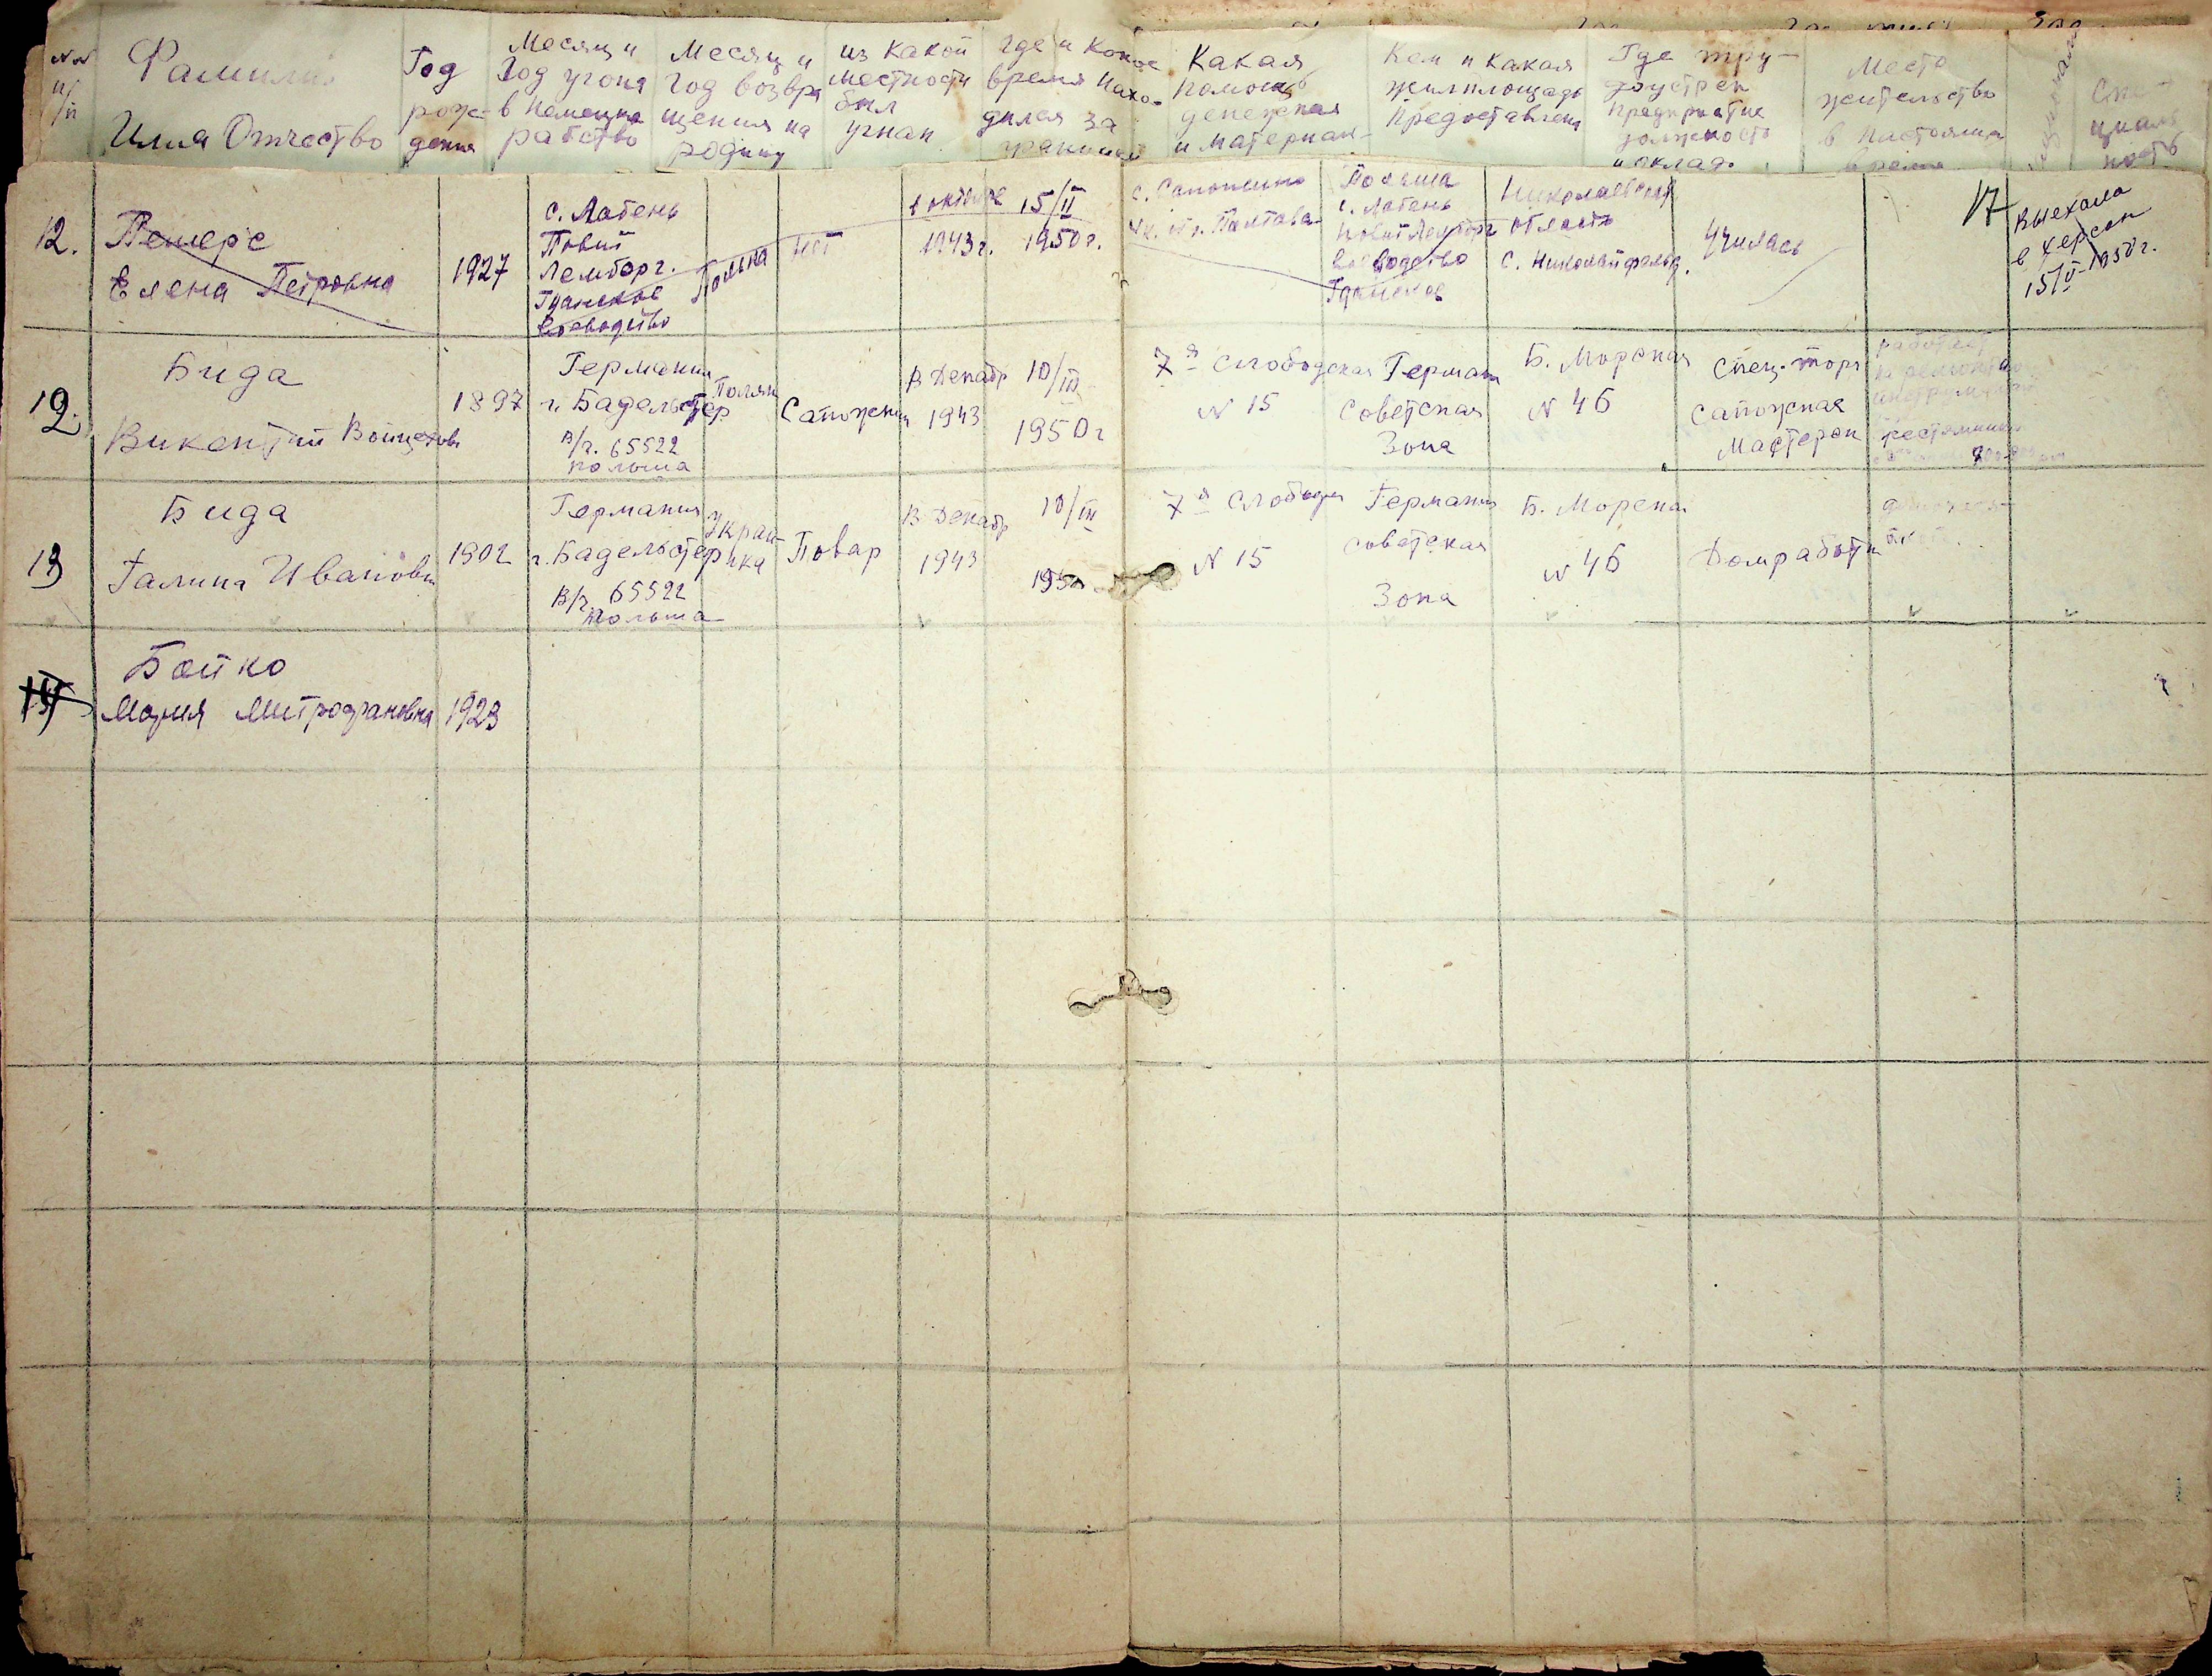 Фамилия
Имя Отчество
Год
рож-
дения
Месяц и
Год угона
в Немецкое
рабство
Месяц и
Год возвра
щения на
родину
из какой
местности
был
угнан
где и какое
время нахо-
дился за
границей
Какая
помощь
денежная
и материал-
Кем и какая
жилплощадь
предоставлена
Где тру-
доустроен
предприятие
должность
и оклад.
Место
жительство
в настоящее
время
Спе-
циаль
ность
12.
Елена Петровна
1927
с. Лабень
Повит
Лемборг.
Гданское
воеводство
Полька
нет
в октябре
1943 г.
15/II
1950 г.
Польша
с. Лабень
повит Лемборг
воеводство
Гданское
Николаевская
область
с. Николайфельд.
училась
17
выехала
в херсон
15/V-1950 г.
12.
Бида
Викентий Войцехов
1897
Германия
г. Бадельстер
в/ч. 65522
польша
Поляк
Сапожник
в Декабр
1943
10/III
1950 г
7я слободская
N 15
Герман
Советская
Зона
Б. Морская
N 46
Спец. торг
сапожная
Мастерск
работает
13
Бида
Галина Ивановн
1902
Германия
г. Бадельстер
в/ч 65522
польша
Украи-
нка
Повар
в Декабр
1943
10/III
1950
7я слободск
N 15
Германия
советская
Зона
Б. Морска
N 46
Домработн
Бойко
Мария Митрофановна
1923